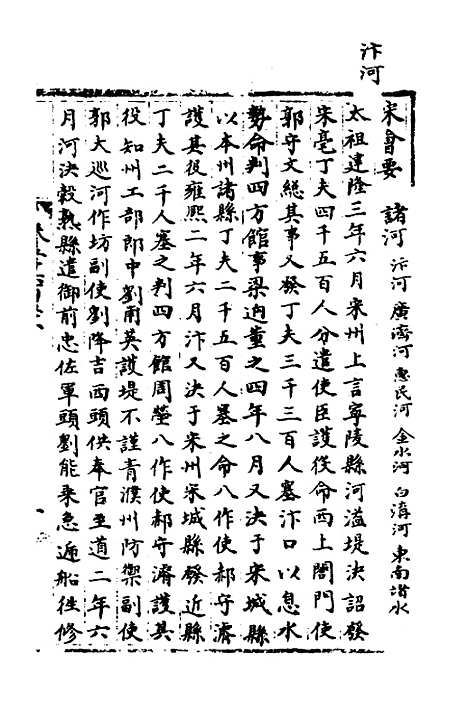 汴河
宋會要
諸河 汴河 廣濟河 惠民河 金水河 白溝河 東南諸水
太祖建隆三年六月宋州上言寧陵縣河溢堤決詔發
宋亳丁夫四千五百人分遣使臣護役命西上閤門使
郭守文緫其事又發丁夫三千三百人塞汴口以息水
勢命判四方館事梁迥董之四年八月又決于宋城縣
以本州諸縣丁夫二千五百人塞之命八作使郝守濬
護其役雍熙二年六月汴又決于宋州宋城縣發近縣
丁夫二千人塞之判四方館周瑩八作使郝守濬護其
役知州工部郎中劉甫英護堤不謹責濮州防禦副使
郭大巡河作坊副使劉降吉西頭供奉官至道二年六
月河決穀熟縣遣御前忠佐軍頭劉能乘急遞船往修